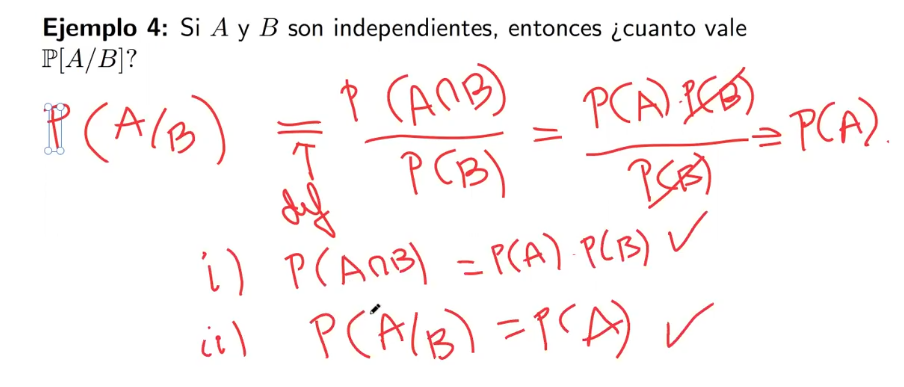 Ejemplo 4: Si A y B son independientes, entonces ¿cuanto vale
ℙ[A/B]?
P(A/B) = P(A∩B)/P(B) = P(A)·P(B)/P(B) = P(A).
def
i) P(A∩B) = P(A)·P(B) ✓
ii) P(A/B) = P(A) ✓